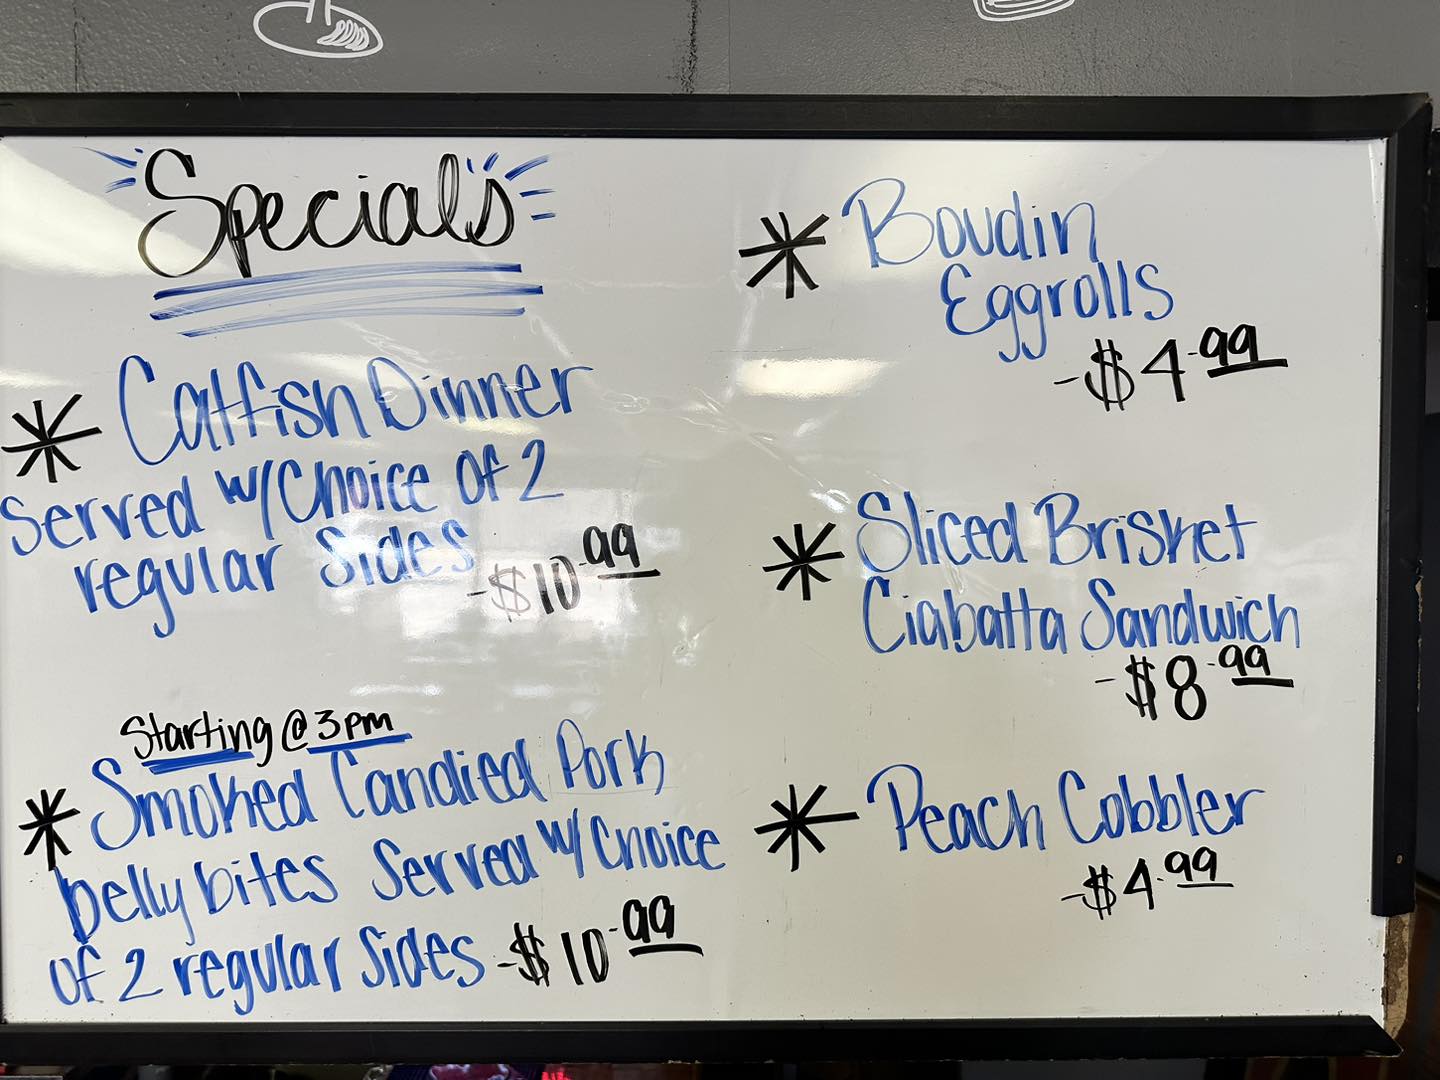 Special's
* Catfish Dinner
Served w/Choice Of 2
regular Sides
-$10.99
Starting @ 3pm
* Smoked Candied Pork
belly bites Served w/ Choice
of 2 regular Sides -$10.99
* Boudin
Eggrolls
-$4.99
* Sliced Brisket
Ciabatta Sandwich
-$8.99
* Peach Cobbler
-$4.99